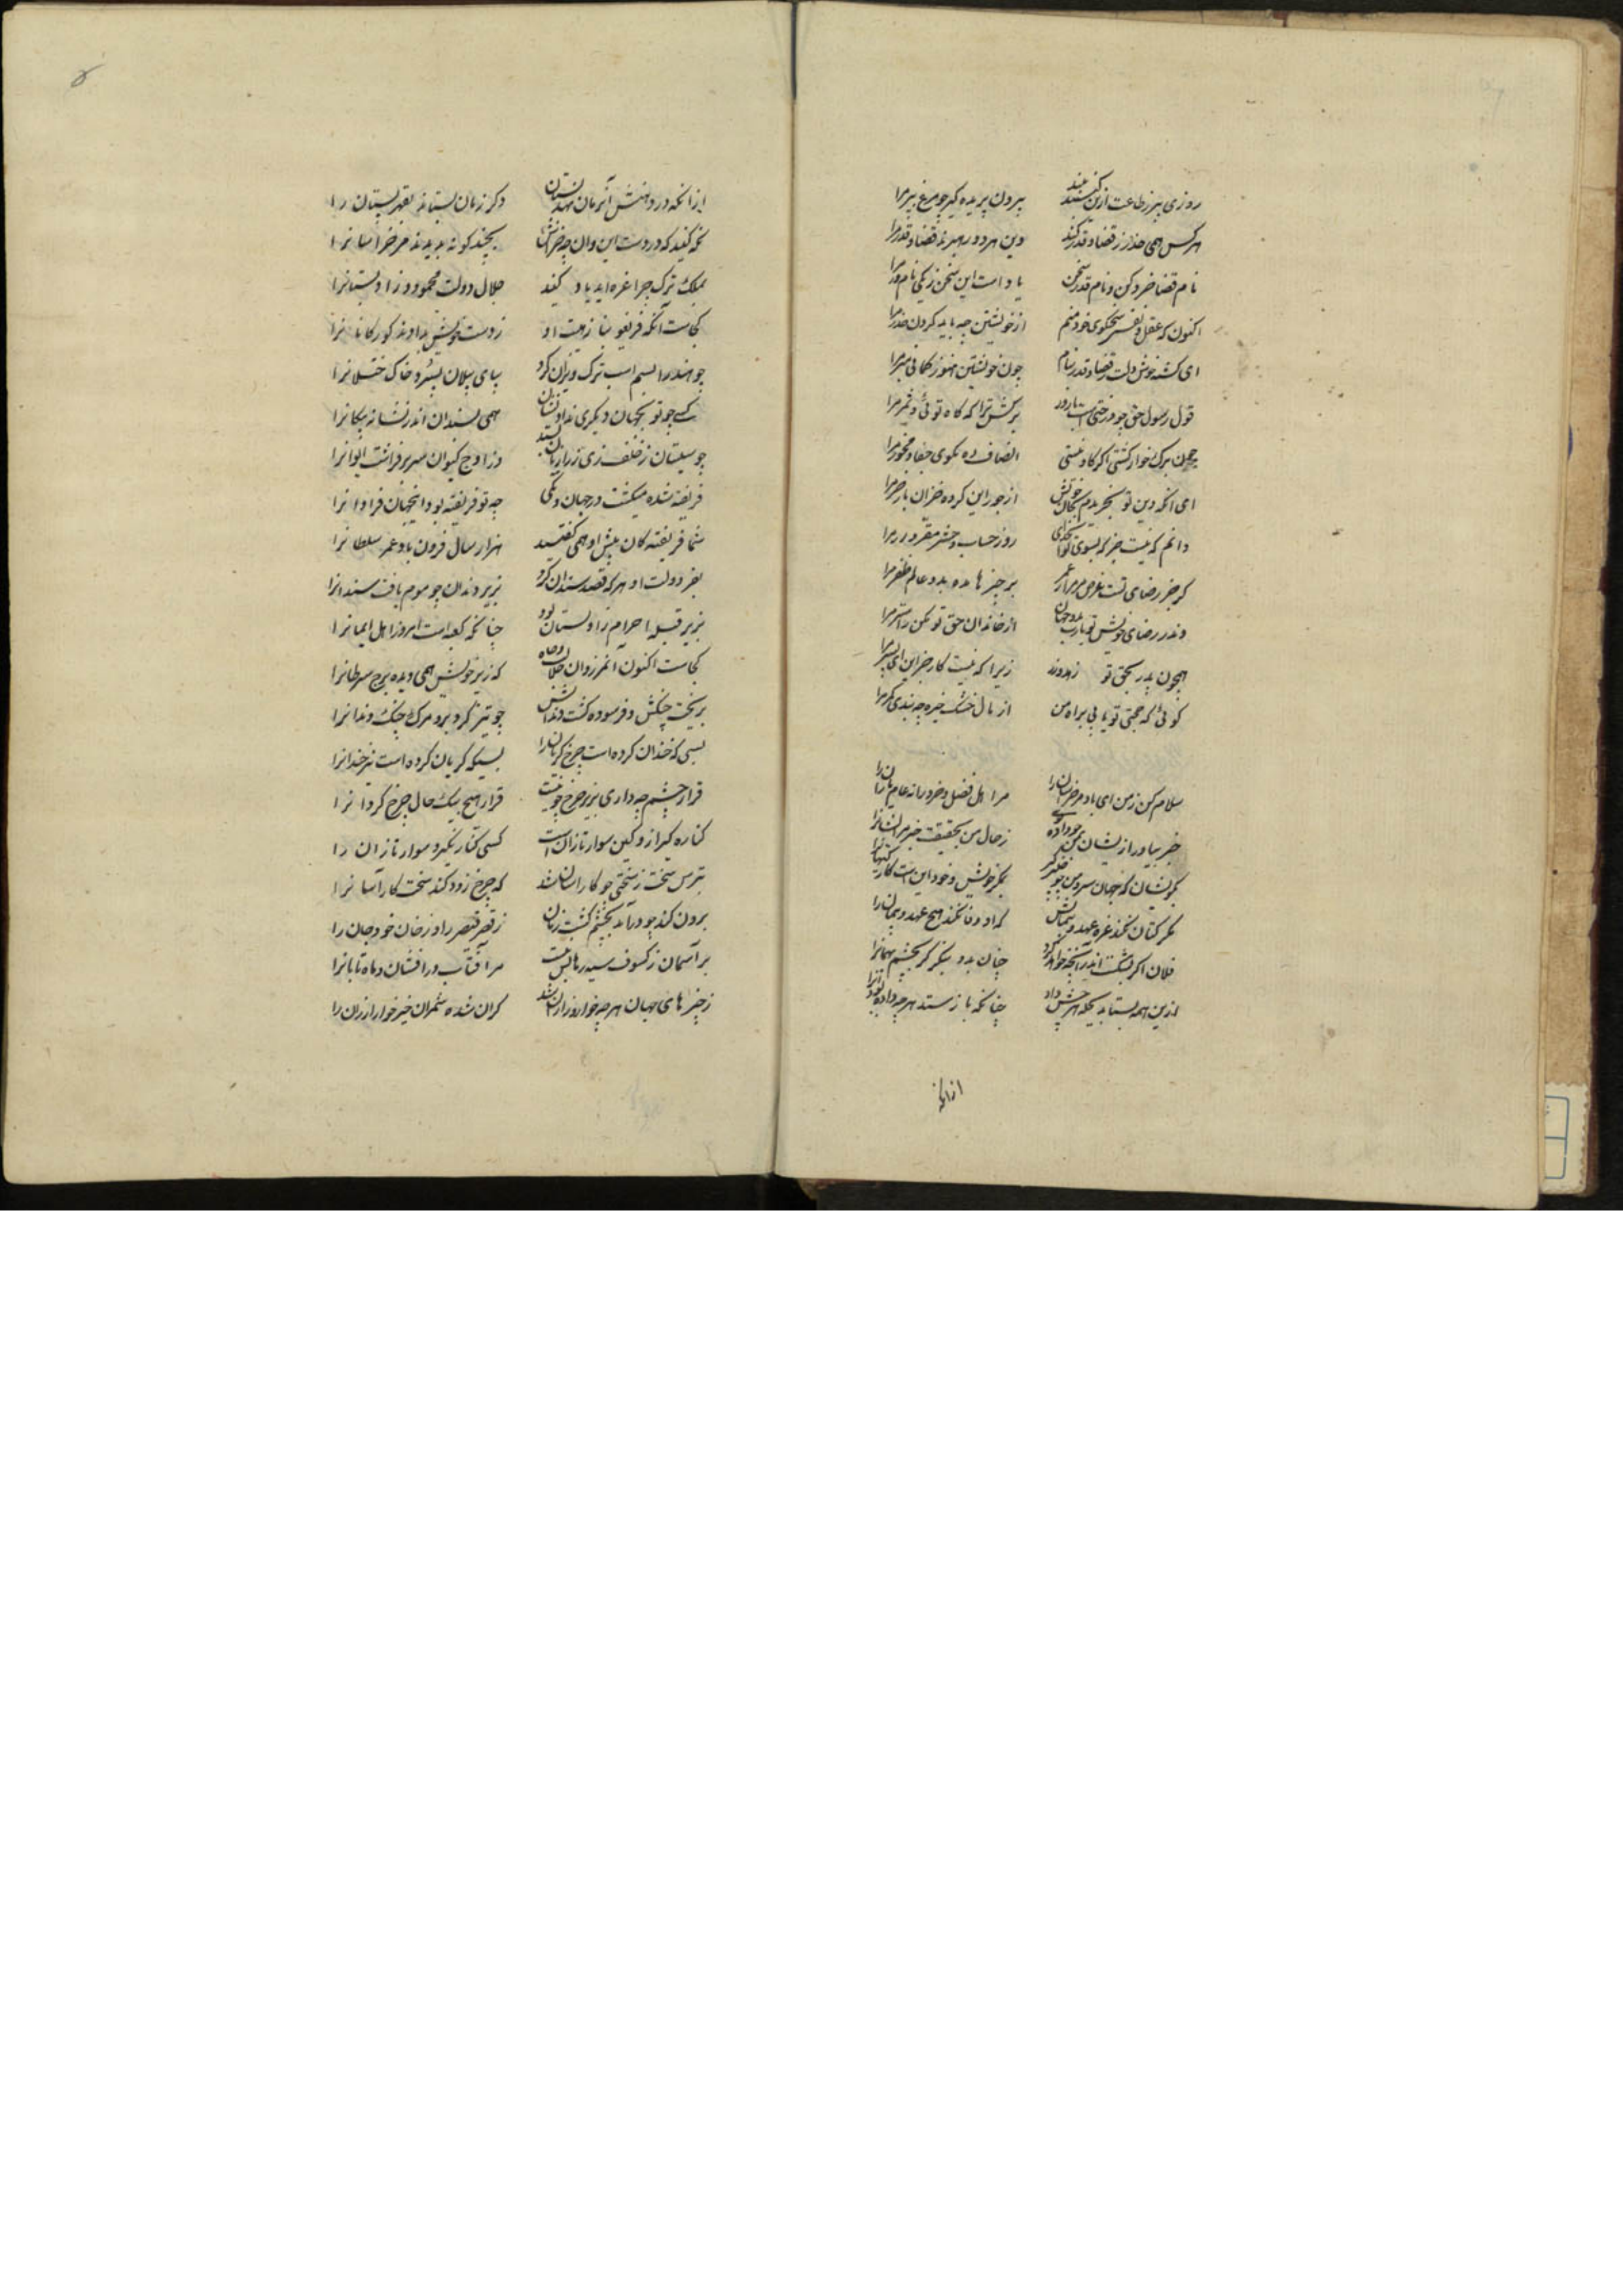 روزی بپر زطاعت ازین کنبد بلند بیرون پریده گیر چو مرغ بپر مرا
هر کس همی حذر ز قضا و قدر کند وین هر دو رهبرند قضا و قدر مرا
نام قضا خرد کن و نام قدر سخن یاد است این سخن ز یکی نامور مرا
اکنون که عقل و نفس سخنگوی خود منم از خویشتن چه باید کردن حذر مرا
ای کشته خوش دلت ز قضا و قدر بنام چون خویشتن هنوز کمانی مبر مرا
قول رسول حق چو درختی است بارور برکش ترا که کاه توئی و ثمر مرا
چون برک خوار کشتی اگر کاو نیستی انصاف ده مکوی جفا و مخور مرا
ای آنکه دین تو بخریدم بجان خویش از جور این کروه خران باز خر مرا
دانم که نیست جز که بسوی تو ای خدای روز حساب و حشر مفر و وزر مرا
کر جز رضای تست غرض مر مرا ز عمر بر چیزها مده بدو عالم ظفر مرا
وندر رضای خویش تو یارب بدو جهان از خاندان حق تو مکن زاستر مرا
همچون پدر بحق تو زهد ورز زیرا که نیست کار جز این ای پسر مرا
کوئی که حجتی تو یابی براه من از بال خشک خیره چه بندی کمر مرا
سلام کن ز من ای باد مر خراسان را مر اهل فضل و خرد را نه عام نادان را
خبر بیاور ازیشان بمن چو داده بوی ز حال من بحقیقت خبر مر ایشانرا
بگویشان که جهان سرو من چو چنبر کرد بمکر خویش و خود این است کار کیهانرا
نگر کتان نکند غره عهد و پیمانش که او وفا نکند هیچ عهد و پیمان را
فلان اکر بشکست اندر آنچه خواهد کرد چنان بدو بنگر کر بچشم بهمانرا
ازین همه بستاند بجمله هر چش داد چنانکه باز ستد هر چه داده بود آنرا
ازانکه
ازانکه در دهنش این زمان نهد پستان دکر زمان بستاند بقهر پستان را
نگه کنید که در دست این و آن چو خراس بچند گونه بدیدند مر خراسانرا
بملک ترک چرا غره اید یاد کنید جلال دولت محمود زاولستانرا
کجاست آنکه فریغونیان ز هیبت او ز دست خویش بدادند کورکانانرا
چو هند را بسم اسب ترک ویران کرد بپای پیلان بسپرد خاک ختلانرا
کسی چو تو بجهان دیگری نداد نشان همی بسندان اندر نشانه پیکانرا
چو سیستان ز خلف ری ز رازیان بستد وز اوج کیوان سر بر فراشت ایوانرا
فریفته شده میکشت در جهان و بکی چه تو فریفته بود اینجهان فراوانرا
شما فریفته کان پیش او همی گفتید هزار سال فزون باد عمر سلطانرا
بفر دولت او هر که قصد سندان کرد بزیر دندان چو موم یافت سندانرا
بزیر قبله احرام زاولستان بود چنانکه کعبه است امروز اهل ایمانرا
کجاست اکنون آنمرد وان جلالت و جاه که زیر خویش همی دیده برج سرطانرا
بریخت چنکش و فرسوده کشت دندانش چو تیز کرد برو مرک چنک و دندانرا
بسی که خندان کرده است چرخ کریان را بسیکه کریان کرده است نیز خندانرا
قرار چشم چه داری بزیر چرخ چو نیست قرار هیچ بیک حال چرخ کردانرا
کناره کیر ازو کین سوار تازان است کسی کنار نگیرد سوار تازان را
بترس سخت ز سختی چو کار آسان شد که چرخ زود کند سخت کار آسانرا
برون کند چو درآمد بخشم کشت زمان ز قصر قیصر را و ز خان و مان خان را
بر آسمان ز کسوف سیه رهایش نیست مر آفتاب درافشان و ماه تابانرا
ز چیزهای جهان هر چه خوار و ارزان شد کران شده شمر آن چیز خوار ارزان را